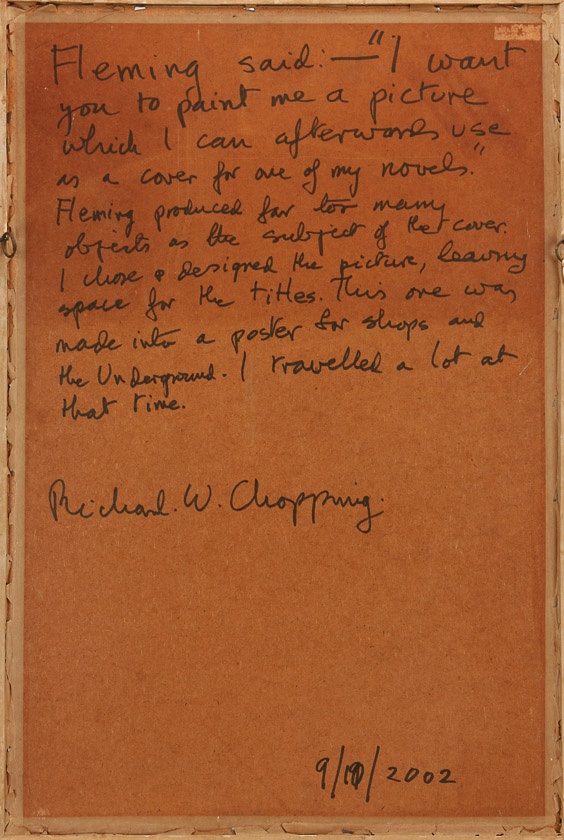 Fleming said:—"I want
you to paint me a picture
which I can afterwards use
as a cover for one of my novels."
Fleming produced far too many
objects as the subject of the cover.
I chose & designed the picture, leaving
space for the titles. This one was
made into a poster for shops and
the Underground. I travelled a lot at
that time.
Richard. W. Chopping.
9/10/2002